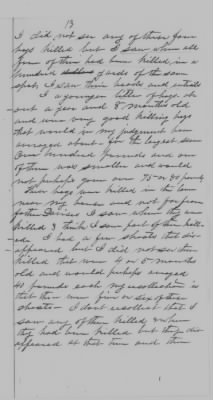 13
I did not see any of these four
hogs killed but I saw where all
four of them had been killed in a
hundred yards of the same
spot. I saw their heads and entrails
a younger litter of hogs ab
out a year and 8 months old
and were very good killing hogs
that would in my judgement have
averaged about for the largest seven
One hundred pounds and one
of them was smaller and would
not perhaps come over 75 or 80 pounds
These hogs were killed in the lane
near my house and not far from
I saw where they were
killed & think I saw part of them kill
ed. I had a few shoats that dis
appeared but I did not see them
killed that were 4 or 5 months
old and would perhaps averaged
40 pounds each my recollection is
that there were five or six of these
shoats – I dont recollect that I
saw any of them killed or where
they had been killed but they dis
appeared at that time and there